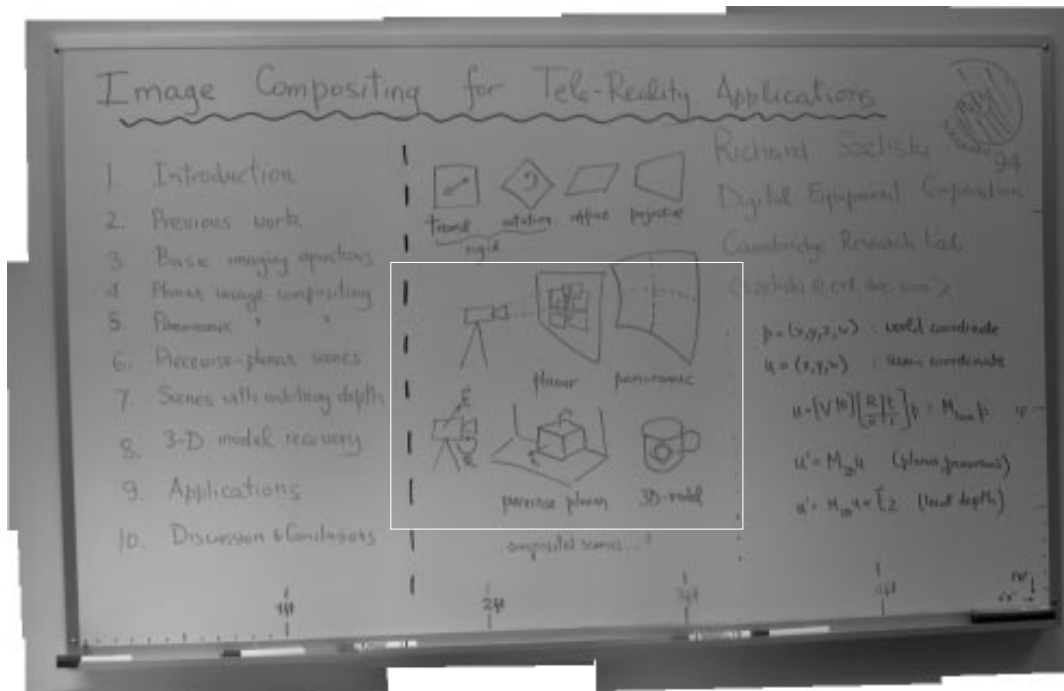 Image Compositing for Tele-Reality Applications
1. Introduction
2. Previous work
3. Basic imaging equations
4. Planar image compositing
5. Panoramic " "
6. Piecewise-planar scenes
7. Scenes with arbitrary depth
8. 3-D model recovery
9. Applications
10. Discussion & Conclusions
transl rotation affine projective
rigid
planar panoramic
piecewise planar 3D-model
composited scenes...?
94
Richard Szeliski
Digital Equipment Corporation
Cambridge Research Lab
<szeliski@crl.dec.com>
p = (x,y,z,w) : world coordinate
u = (x,y,w) : screen coordinate
u' = M₂D u (planar, panoramic)
(local depth)
1ft 2ft 3ft 4ft